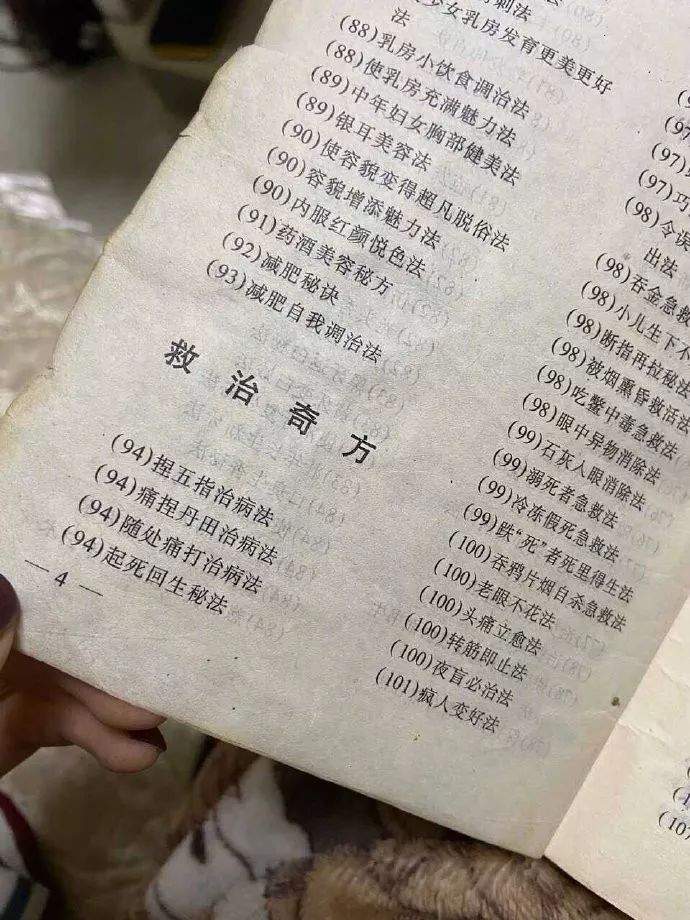 刺法
少女乳房发育更美更好
法
(88)乳房小饮食调治法
(88)使乳房充满魅力法
(89)中年妇女胸部健美法
(89)银耳美容法
(90)使容貌变得超凡脱俗法
(90)容貌增添魅力法
(90)内服红颜悦色法
(91)药酒美容秘方
(92)减肥秘诀
(93)减肥自我调治法
救治奇方
(94)捏五指治病法
(94)痛捏丹田治病法
(94)随处痛打治病法
(94)起死回生秘法
— 4 —
(97)
(97)巧
(98)令误
出法
(98)吞金急救
(98)小儿生下不
(98)断指再拉秘法
(98)被烟熏昏救活法
(98)吃鳖中毒急救法
(98)眼中异物消除法
(99)石灰人眼消除法
(99)溺死者急救法
(99)冷冻假死急救法
(99)跌“死”者死里得生法
(100)吞鸦片烟自杀急救法
(100)老眼不花法
(100)头痛立愈法
(100)转筋即止法
(100)夜盲必治法
(101)疯人变好法